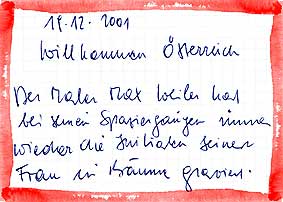 19.12.2001
Willkommen Österreich
Der Maler Max Weiler hat
bei seinen Spaziergängen immer
wieder die Initialen seiner
Frau in Bäume graviert.